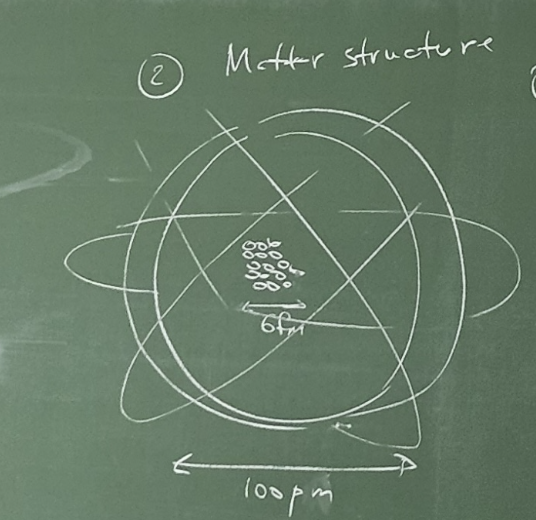 ② Matter structure
6fm
100pm